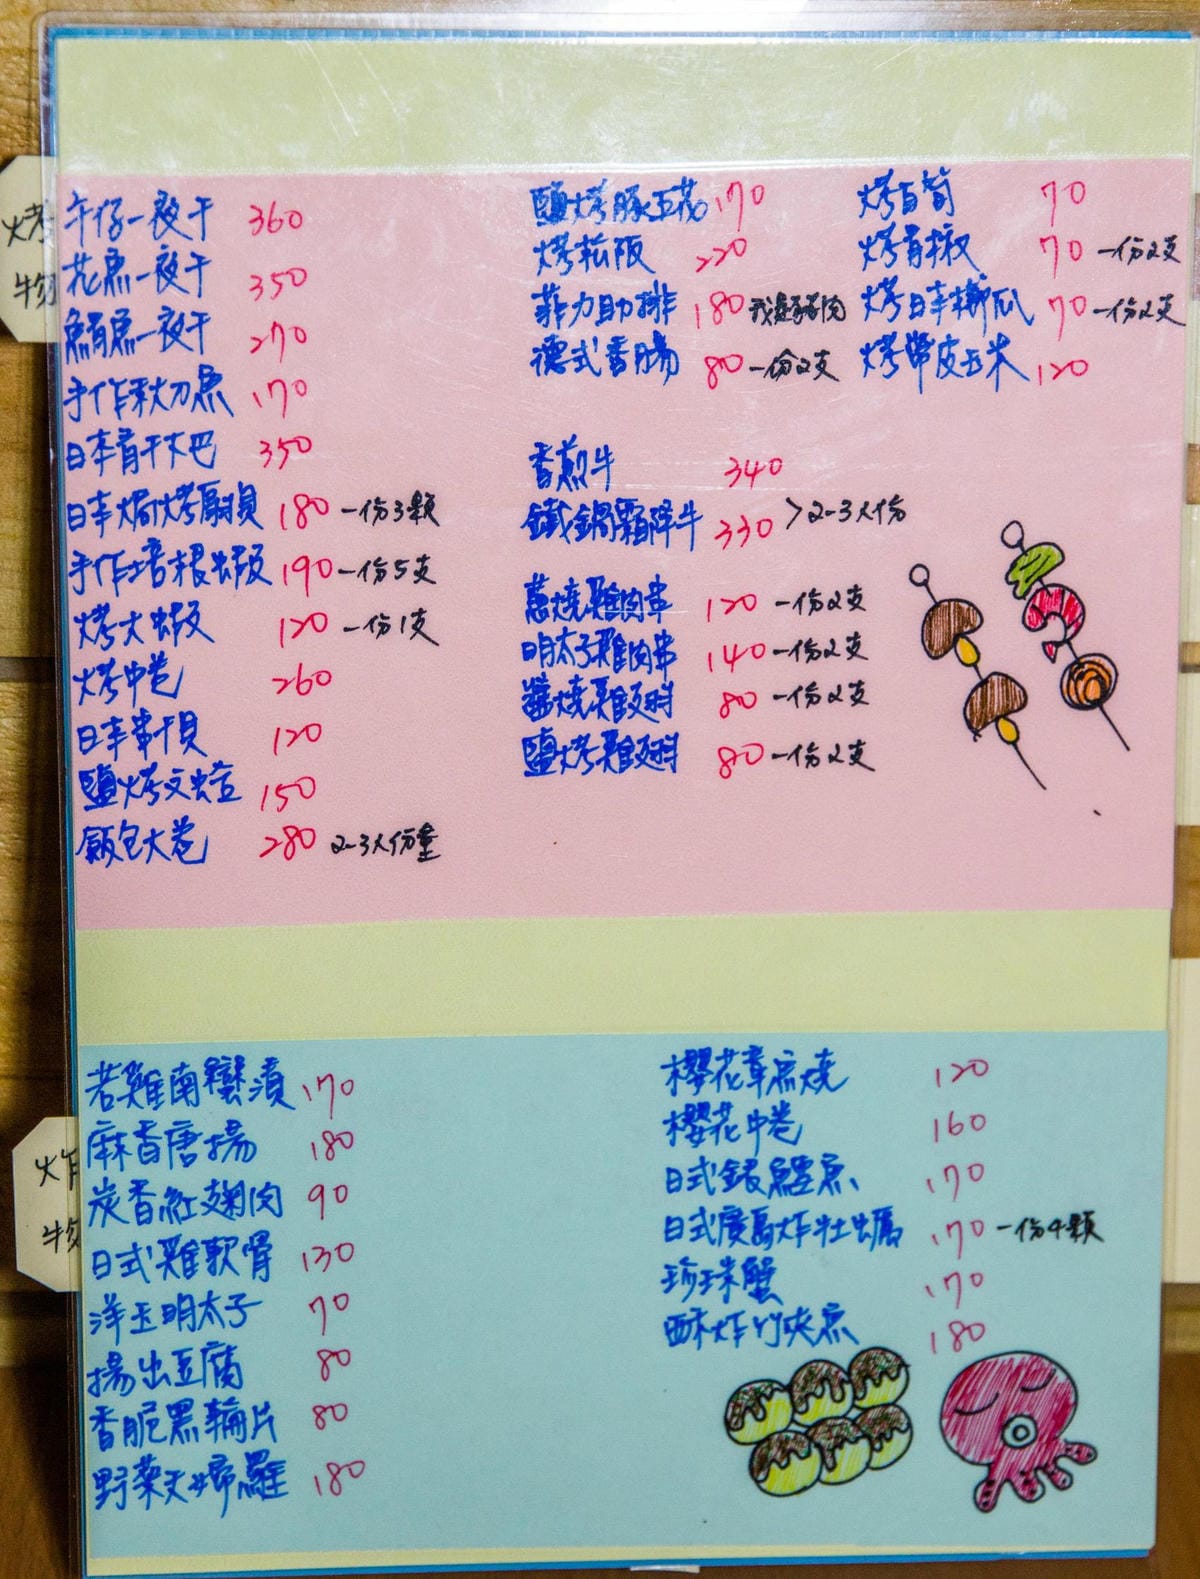 烤物
午仔一夜干 360
花魚一夜干 350
鯖魚一夜干 270
手作秋刀魚 170
日本青干木巴 350
日本焗烤扇貝 180 一份3顆
手作培根蝦 190 一份5支
烤大蝦 120 一份1支
烤中卷 260
日本串干貝 120
鹽烤文蛤 150
飯包大卷 280 2-3人份量
鹽烤豚五花 170
烤松阪 220
菲力助排 180 我是豬肉
德式香腸 80 一份2支
香煎牛 340
鐵鍋霜降牛 330 >2-3人份
蔥燒雞肉串 120 一份2支
明太子雞肉串 140 一份2支
醬燒雞翅 80 一份2支
鹽烤雞翅 80 一份2支
烤百筍 70
烤青椒 70 一份2支
烤日本櫛瓜 70 一份2支
烤帶皮玉米 120
炸物
若雞南蠻漬 170
麻香唐揚 180
炭香紅麴肉 90
日式雞軟骨 130
洋玉明太子 70
揚出豆腐 80
香脆黑輪片 80
野菜天婦羅 180
櫻花章魚燒 120
櫻花中卷 160
日式銀鱈魚 170
日式廣島炸牡蠣 170 一份4顆
珍珠蟹 170
酥炸竹夾魚 180